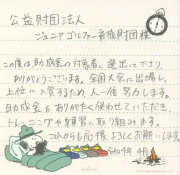 公益財団法人
ジュニアゴルファー育成財団様
この度は助成金の対象者に選出して下さり
ありがとうございます。全国大会に出場し、
上位に入賞するため、人一倍努力します。
助成金をありがたく使わせていただき、
トレーニングや練習に取り組みます。
これからも応援よろしくお願いします。
令和4年4月